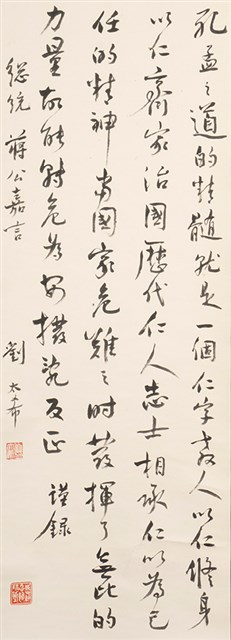 孔孟之道的精髓就是一個仁字教人以仁修身
以仁齊家治國歷代仁人志士相承仁以為己
任的精神當國家危難之時發揮了無比的
力量故能轉危為安撥亂反正 謹錄
總統 蔣公嘉言 劉太希